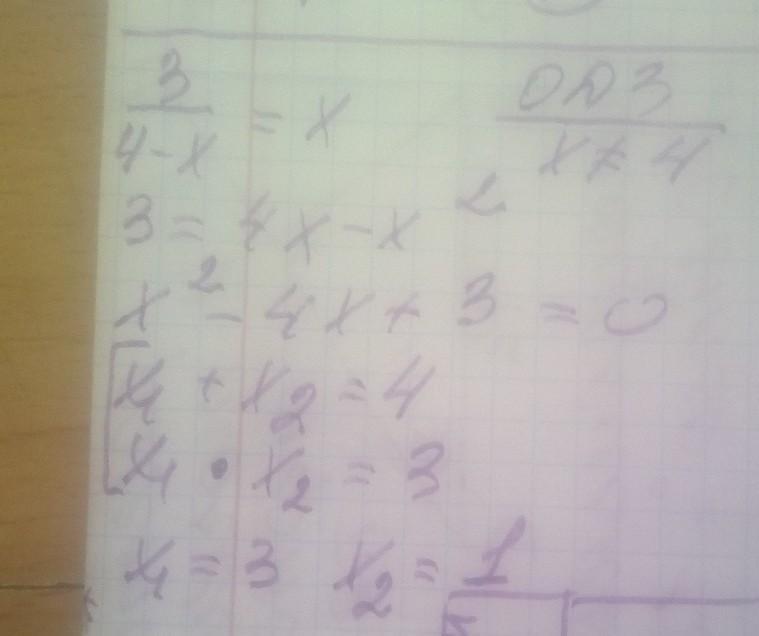 3/(4-x) = x
ОДЗ
x ≠ 4
3 = 4x - x²
x² - 4x + 3 = 0
x₁ + x₂ = 4
x₁ · x₂ = 3
x₁ = 3 x₂ = 1